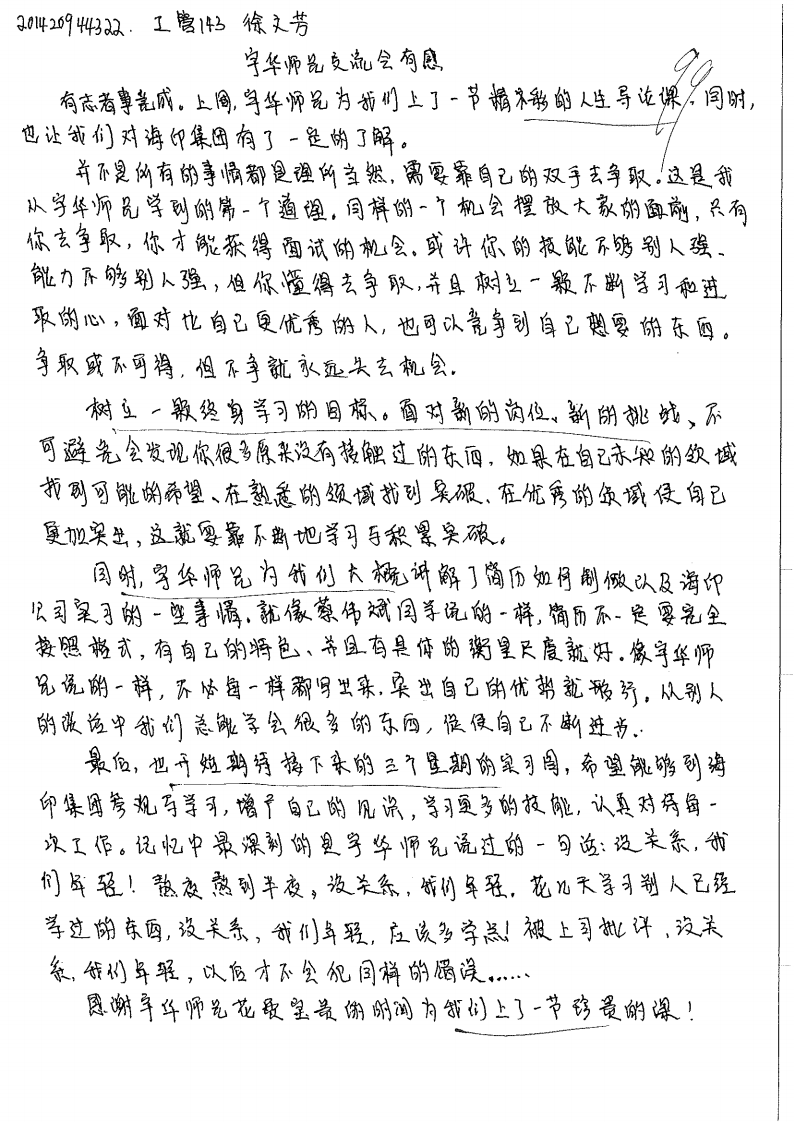 201420944322. 工管143 徐文芳
宇华师兄交流会有感
99
有志者事竟成。上周,宇华师兄为我们上了一节精彩的人生导论课。同时,
也让我们对海印集团有了一定的了解。
并不是所有的事情都是理所当然,需要靠自己的双手去争取。这是我
从宇华师兄学到的第一个道理。同样的一个机会摆放大家的面前,只有
你去争取,你才能获得面试的机会。或许你的技能不够别人强、
能力不够别人强,但你懂得去争取,并且树立一颗不断学习和进
取的心,面对比自己更优秀的人,也可以竞争到自己想要的东西。
争取或不可得,但不争就永远失去机会。
树立一颗终身学习的目标。面对新的岗位、新的挑战、不
可避免会发现你很多原来没有接触过的东西,如果在自己未知的领域
找到可能的希望、在熟悉的领域找到突破、在优秀的领域使自己
更加突出,这就要靠不断地学习与积累突破。
同时,宇华师兄为我们大概讲解了简历如何制做以及海印
公司实习的一些事情。就像蔡伟斌同学说的一样,简历不一定要完全
按照格式,有自己的特色、并且有具体的衡量尺度就好。像宇华师
兄说的一样,不必每一样都写出来,突出自己的优势就够行。从别人
的谈话中我们总能学会很多的东西,促使自己不断进步.
最后,也开始期待接下来的三个星期的实习周,希望能够到海
印集团参观与学习,增广自己的见识,学习更多的技能,认真对待每一
次工作。记忆中最深刻的是宇华师兄说过的一句话:没关系,我
们年轻!熬夜熬到半夜,没关系,我们年轻。花几天学习别人已经
学过的东西,没关系,我们年轻,应该多学点!被上司批评,没关
系,我们年轻,以后才不会犯同样的错误……
感谢宇华师兄花最宝贵的时间为我们上了一节珍贵的课!